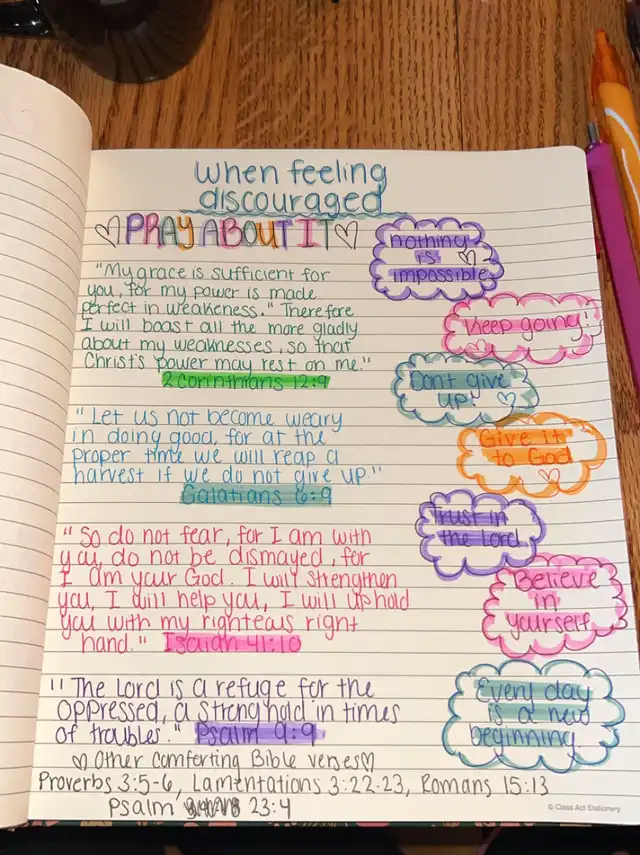 when feeling
discouraged
♡PRAY ABOUT IT♡
"My grace is sufficient for
you, for my power is made
perfect in weakeness." Therefere
I will boast all the more gladly
about my weaknesses, so that
Christ's power may rest on me."
2 Corinthians 12:9
"Let us not become weary
in doing good, for at the
proper time we will reap a
harvest if we do not give up."
Galatians 6:9
"So do not fear, for I am with
you, do not be dismayed, for
I am your God. I will strengthen
you, I will help you, I will uphold
you with my righteous right
hand." Isaiah 41:10
"The Lord is a refuge for the
oppressed, a stronghold in times
of troubles." Psalm 9:9
♡Other comforting Bible verses♡
Proverbs 3:5-6, Lamentations 3:22-23, Romans 15:13
Psalm 23:4
nothing
is
impossible
Keep going!
Don't give
up!
Give it
to God
Trust in
the Lord
Believe
in
yourself
Every day
is a new
beginning
© Class Act Stationery